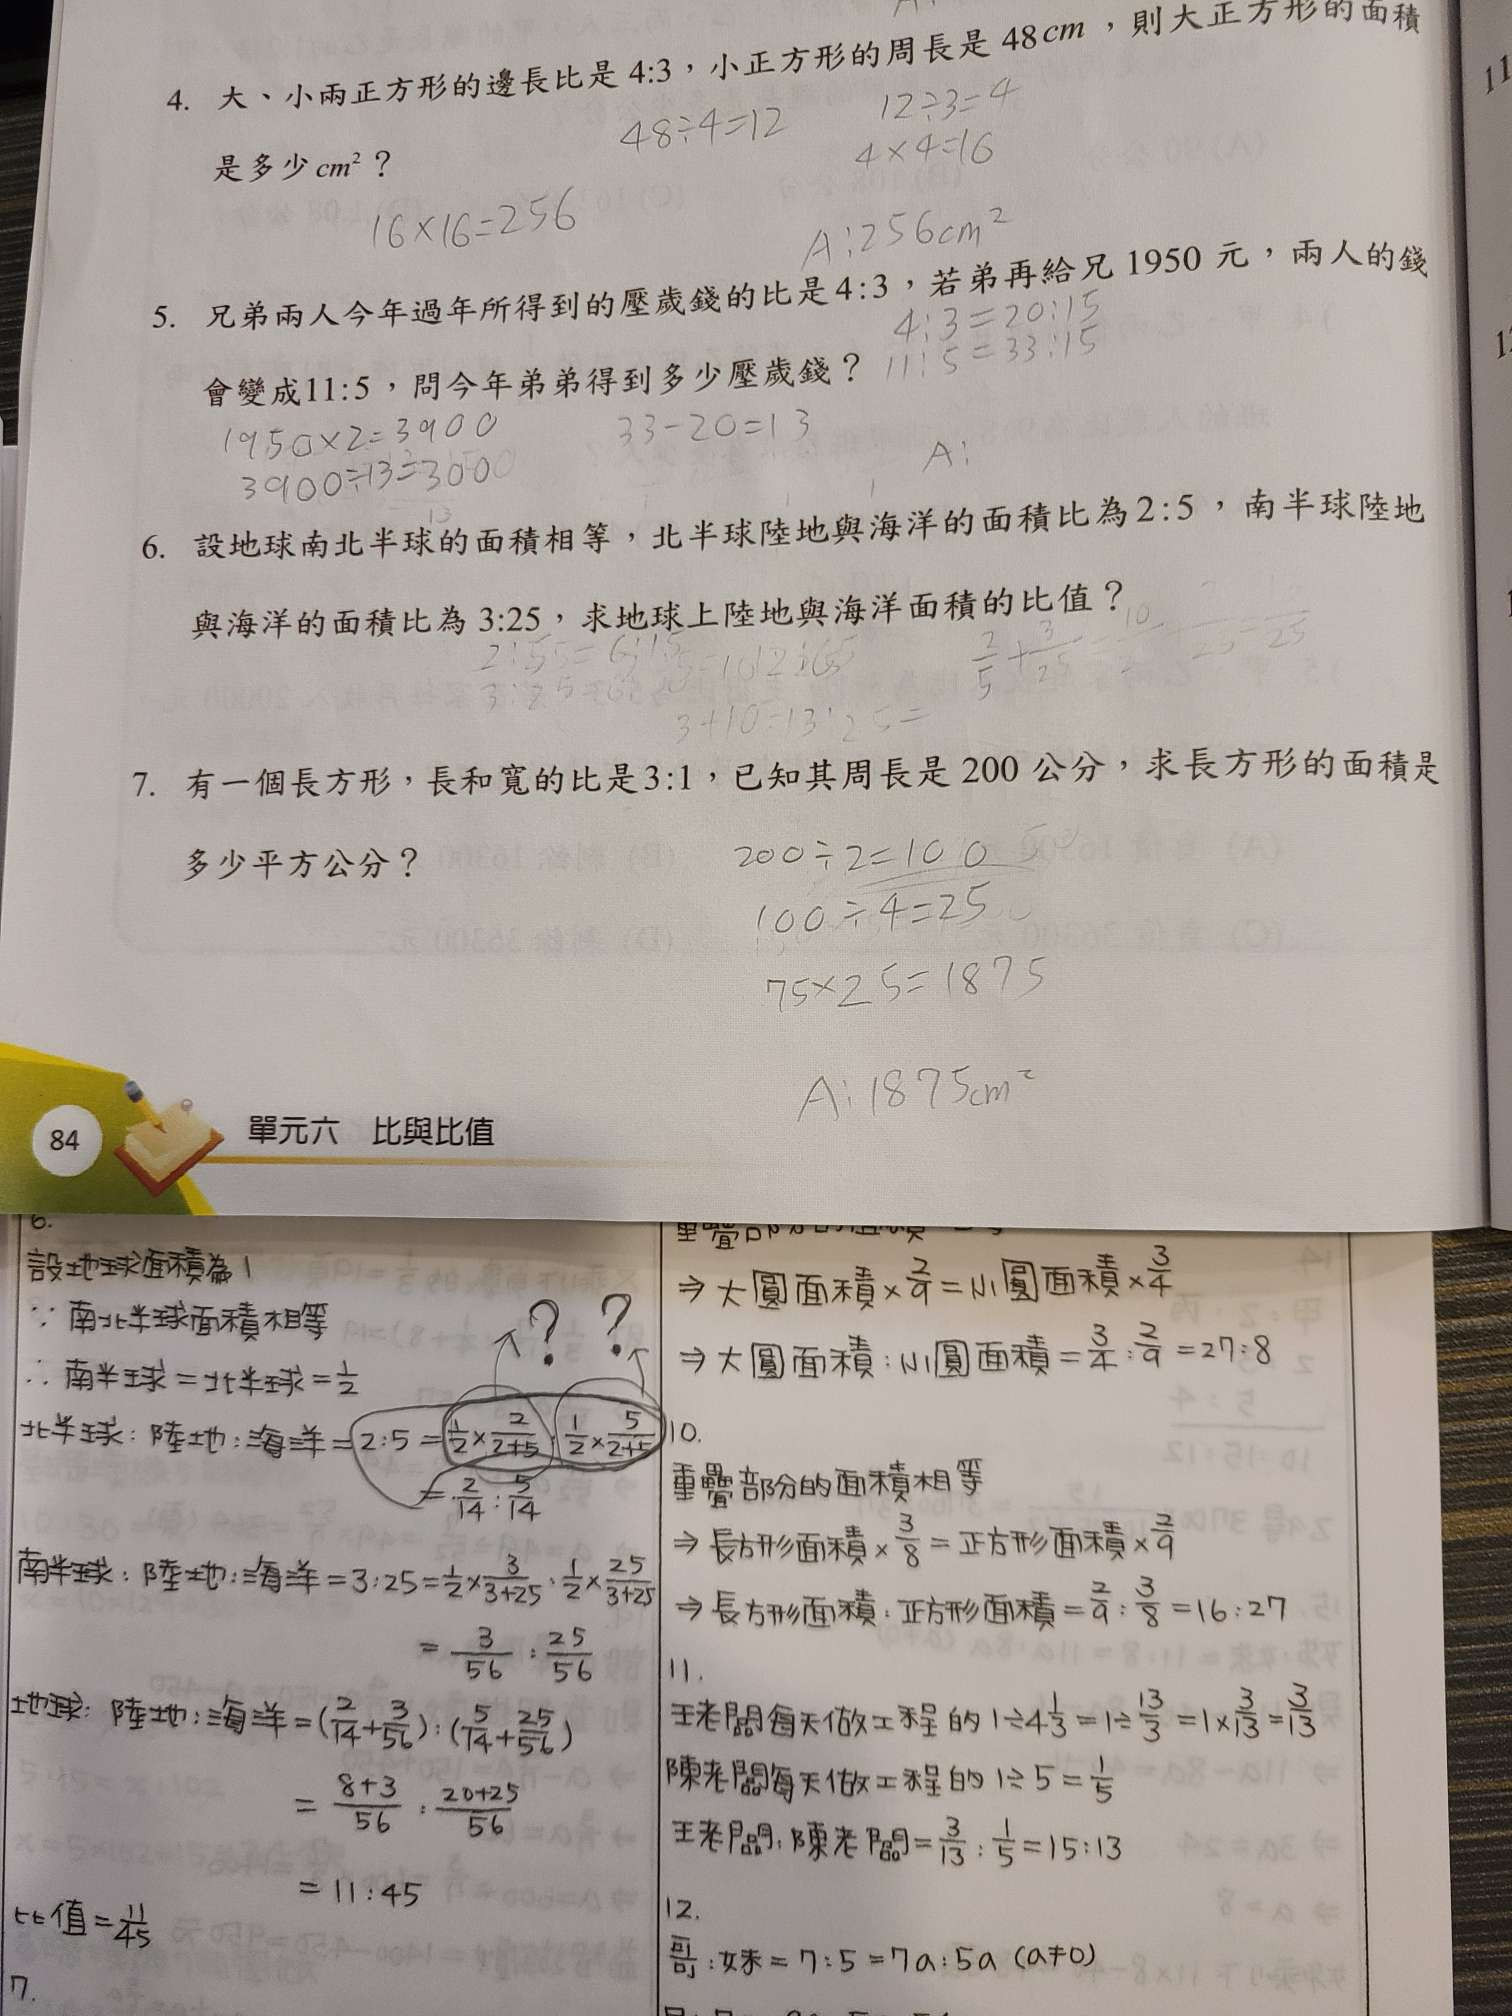 4. 大、小兩正方形的邊長比是 4:3，小正方形的周長是 48cm，則大正方形的面積
是多少 cm²？
48÷4=12
12÷3=4
4×4=16
16×16=256
A:256cm²
5. 兄弟兩人今年過年所得到的壓歲錢的比是4:3，若弟再給兄 1950 元，兩人的錢
會變成11:5，問今年弟弟得到多少壓歲錢？
4:3=20:15
11:5=33:15
1950×2=3900
33-20=13
3900÷13=300
A:
6. 設地球南北半球的面積相等，北半球陸地與海洋的面積比為2:5，南半球陸地
與海洋的面積比為 3:25，求地球上陸地與海洋面積的比值？
3+10=13:25=
7. 有一個長方形，長和寬的比是3:1，已知其周長是 200 公分，求長方形的面積是
多少平方公分？
200÷2=100
100÷4=25
75×25=1875
A:1875cm²
84
單元六 比與比值
6.
設地球面積為1
∵南北半球面積相等
∴南半球=北半球=1/2
北半球:陸地:海洋=2:5=1/2×2/(2+5):1/2×5/(2+5)
? ?
=2/14:5/14
南半球:陸地:海洋=3:25=1/2×3/(3+25):1/2×25/(3+25)
=3/56:25/56
地球:陸地:海洋=(2/14+3/56):(5/14+25/56)
=(8+3)/56:(20+25)/56
=11:45
比值=11/45
7.
⇒大圓面積×2/9=小圓面積×3/4
⇒大圓面積:小圓面積=3/4:2/9=27:8
10.
重疊部分的面積相等
⇒長方形面積×3/8=正方形面積×2/9
⇒長方形面積:正方形面積=2/9:3/8=16:27
11.
王老闆每天做工程的1÷4 1/3=1÷13/3=1×3/13=3/13
陳老闆每天做工程的1÷5=1/5
王老闆:陳老闆=3/13:1/5=15:13
12.
哥:妹=7:5=7a:5a (a≠0)
11